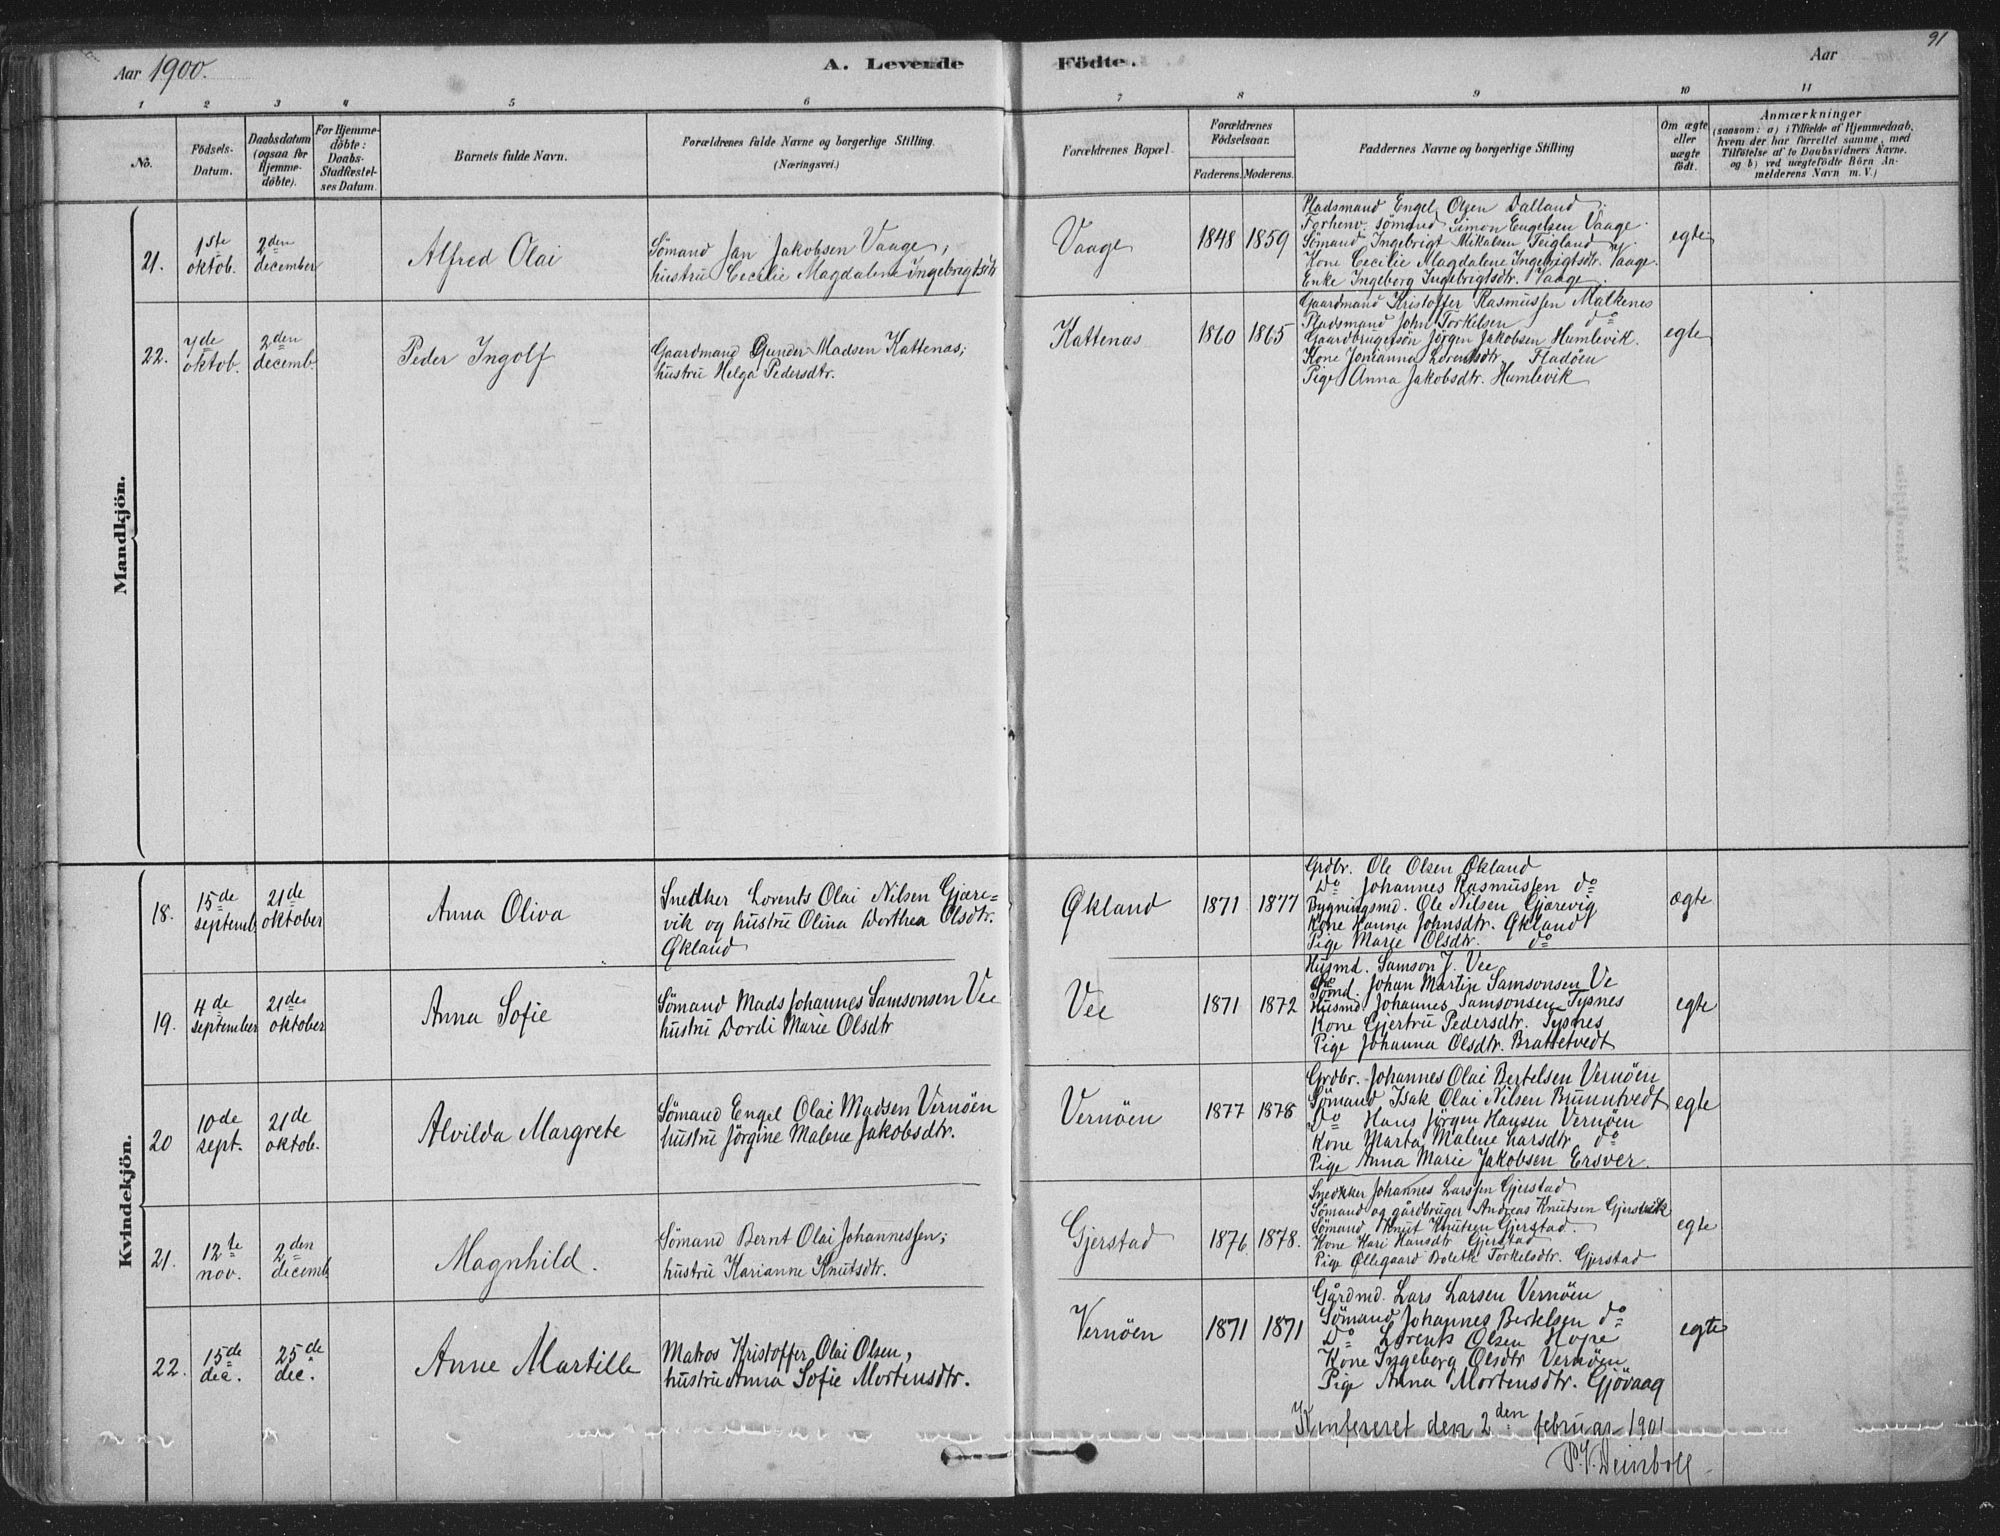 Aar 1900.
A. Levende
Födte.
Aar
91
1
2
3
4
5
6
7
8
9
10
11
No.
Födsels-
Datum.
Daabsdatum
(ogsaa for
Hjemme-
döbte).
For Hjemme-
döbte:
Daabs-
Stadfæstel-
ses Datum.
Barnets fulde Navn.
Forældrenes fulde Navne og borgerlige Stilling.
(Næringsvei.)
Forældrenes Bopæl.
Forældrenes
Födselsaar.
Faderens.
Moderens.
Faddernes Navne og borgerlige Stilling
Om ægte
eller
uægte
født.
Anmærkninger
(saasom: a) i Tilfælde af Hjemmedaab,
hvem der har forrettet samme, med
Tilföielse af to Daabsvidners Navne,
og b) ved uægtefödte Börn An-
melderens Navn m. V.)
Mandkjön.
21.
1ste
oktob.
2den
december
Alfred Olai
Sömand Jan Jakobsen Vaage,
hustru Cecilie Magdalene Ingebrigtsdtr
Vaage
1848
1859
Pladsmand Engel Olsen Dalland.
Forhenv. sömand Simon Engelsen Vaage.
Sömand Ingebrigt Mikalsen Teigland.
Kone Cecilie Magdalene Ingebrigtsdtr. Vaage.
Enke Ingeborg Ingebrigtsdtr. Vaage.
egte
22.
7de
oktob.
2den
decemb.
Peder Ingolf
Gaardmand Gunder Madsen Kattenas;
hustru Helga Pedersdtr.
Kattenas
1860
1865
Gaardmand Kristoffer Rasmussen Malkenes
Pladsmand John Torkelsen do
Gaardbrugersön Jörgen Jakobsen Humlevik.
Kone Jonianna Lorentsdtr. Fladöen
Pige Anna Jakobsdtr. Humlevik
egte
Kvindekjön.
18.
15de
septemb
21de
oktober
Anna Oliva
Snedker Lorents Olai Nilsen Gjære=
vik og hustru Olina Dorthea Olsdtr.
Økland
Økland
1871
1877
Grdbr. Ole Olsen Økland
Do Johannes Rasmussen do
Bygningsmd. Ole Nilsen Gjærevig
Kone Hanna Johnsdtr. Økland
Pige Marie Olsdtr. do
ægte
19.
4de
september
21de
oktober
Anna Sofie
Sömand Mads Johannes Samsonsen Vee
hustru Dordi Marie Olsdtr
Vee
1871
1872
Husmd. Samson J. Vee
Sömd Johan Martin Samsonsen Ve
Husmd Johannes Samsonsen Tysnes
Kone Gjertru Pedersdtr. Tysnes
Pige Johanna Olsdtr. Brattetvedt
egte
20
10de
sept.
21de
oktob.
Alvilda Margrete
Sömand Engel Olai Madsen Vernöen
hustru Jörgine Malene Jakobsdtr.
Vernöen
1877
1878
Grdbr. Johannes Olai Bertelsen Vernöen
Sömand Isak Olai Nilsen Brunntvedt
Do Hans Jörgen Hansen Vernöen
Kone Marta Malene Larsdtr do
Pige Anna Marie Jakobsen Ersver.
egte
21.
12te
nov.
2den
decemb
Magnhild.
Sömand Bernt Olai Johannessen;
hustru Karianne Knutsdtr.
Gjerstad
1876
1878.
Snedkker Johannes Larssen Gjerstad
Sömand og gårdbruger Andreas Knudsen Gjersvik
Sömand Knut Knutsen Gjerstad.
Kone Kari Hansdtr Gjerstad
Pige Øllegaard Bolette Torkelsdtr. Gjerstad
egte
22.
15de
dec.
25de
dec.
Anne Martille
Matros Kristoffer Olai Olsen,
hustru Anna Sofie Mortensdtr.
Vernöen
1871
1871
Gårdmd. Lars Larsen Vernöen
Sömand Johannes Bertelsen do
Do Lorents Olsen Hope
Kone Ingeborg Olsdtr Vernöen
Pige Anna Mortensdtr. Gjövaag
egte
Konfereret den 2den februar 1901
P.V. Deinboll